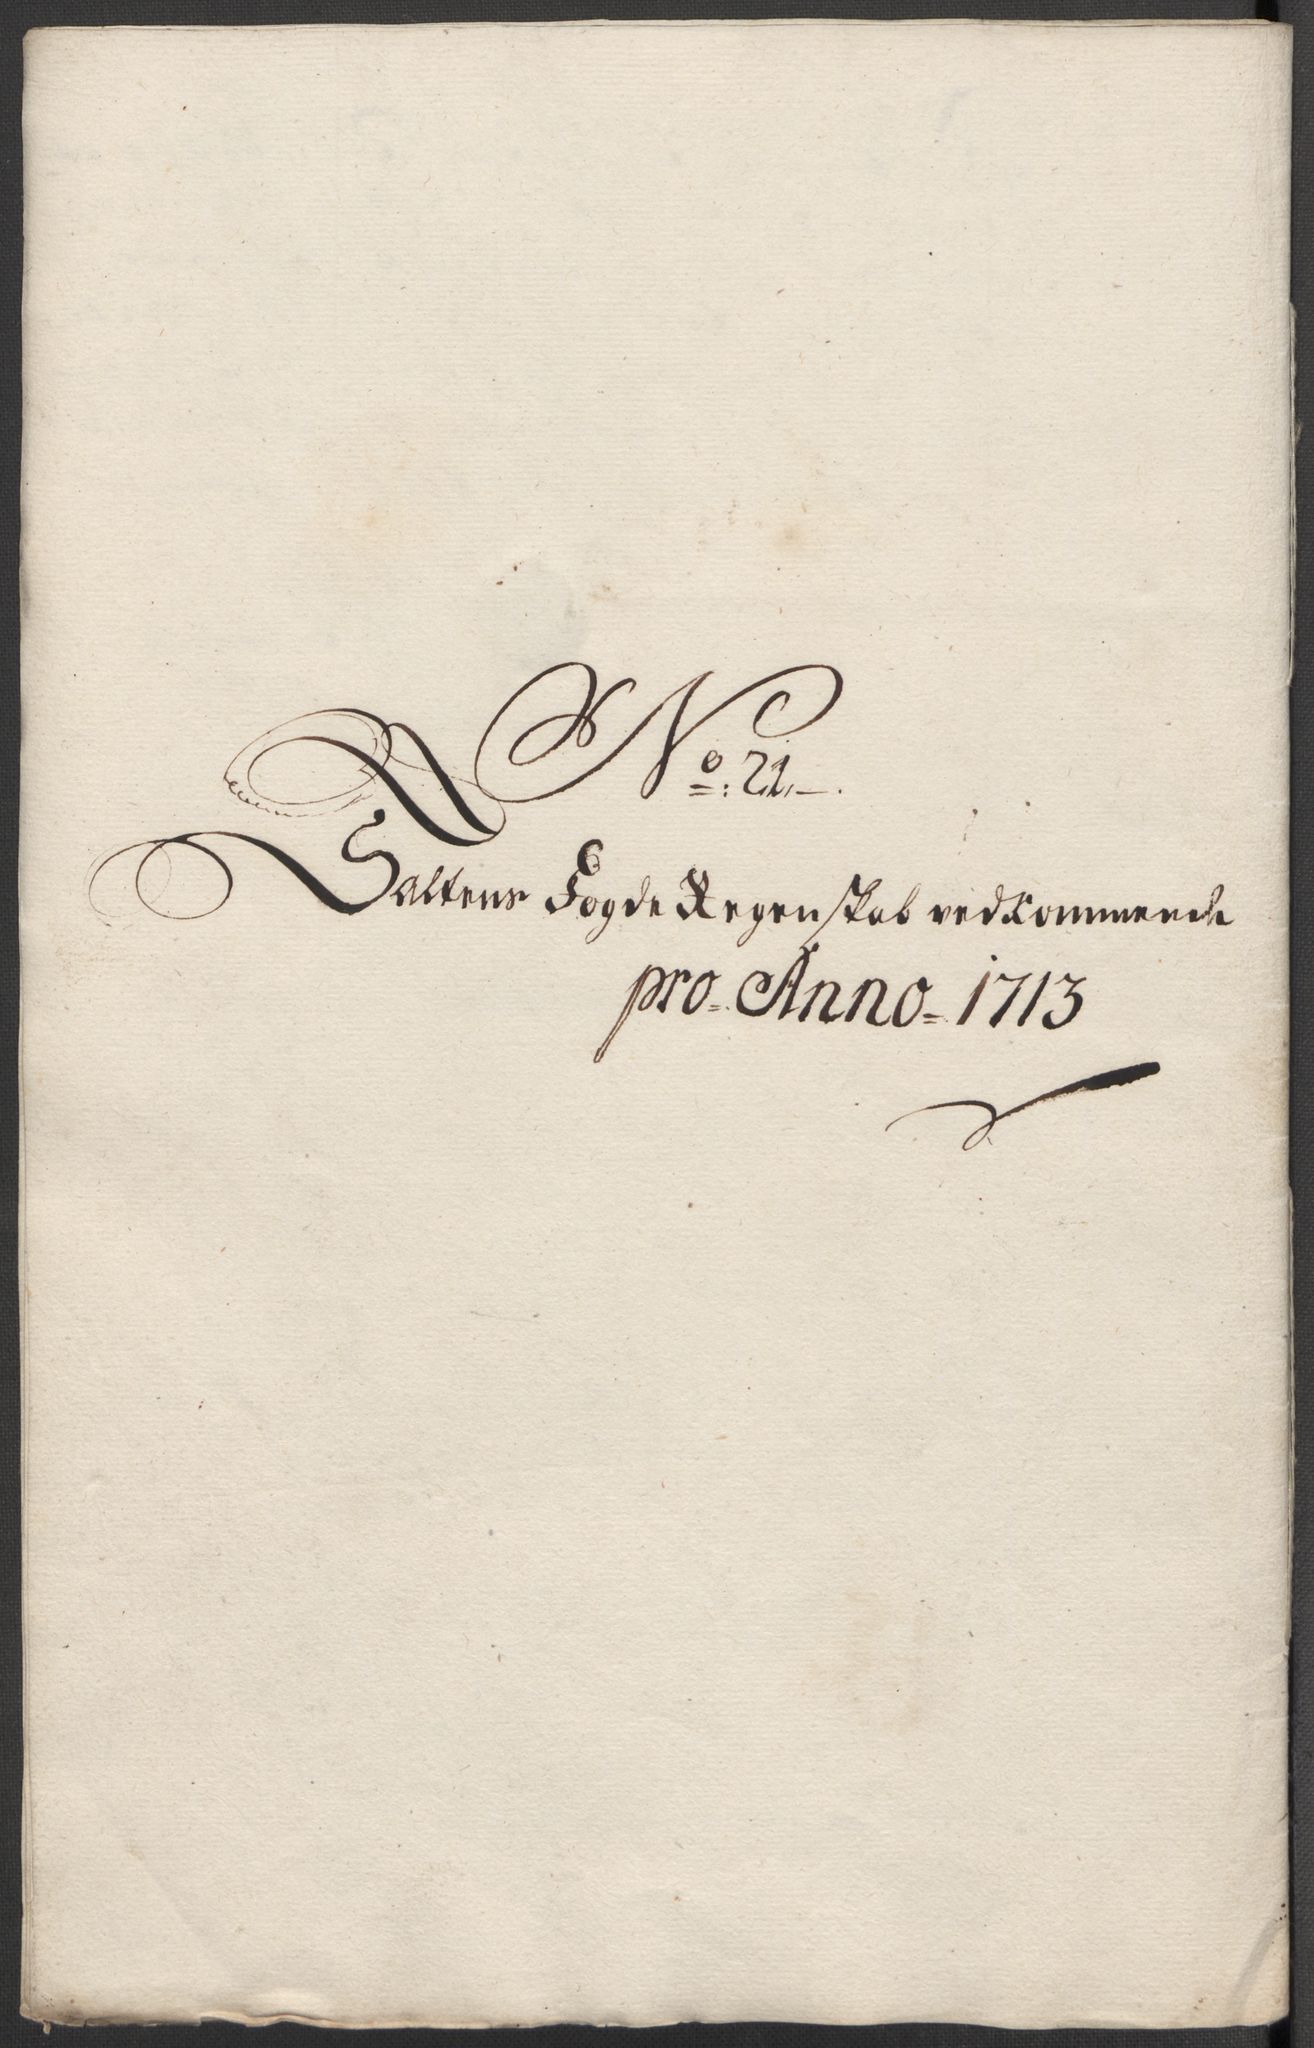 No: 21.
Saltens Fogde Regenskab vedkommende
pro Anno 1713